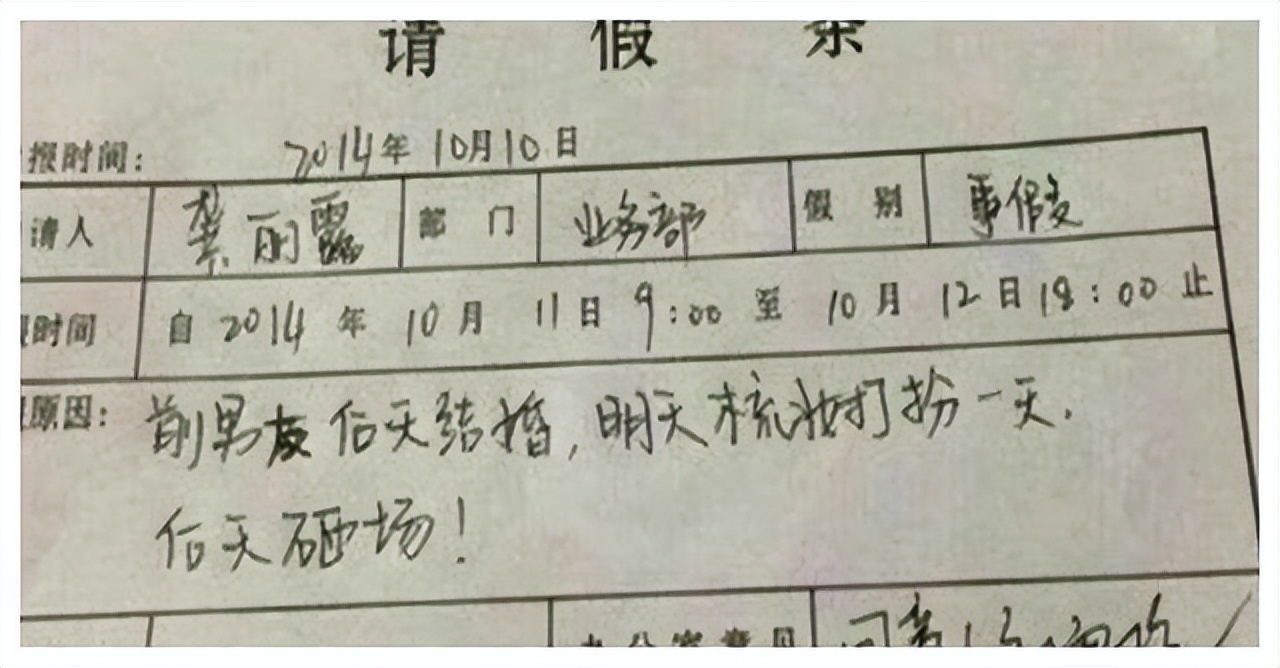 请 假 条
报时间： 2014年 10月10日
请人 龚丽露 部 门 业务部 假 别 事假
时间 自 2014 年 10 月 11 日 9:00 至 10 月 12 日 18:00 止
原因： 前男友后天结婚，明天梳妆打扮一天.
后天砸场！
办公室意见